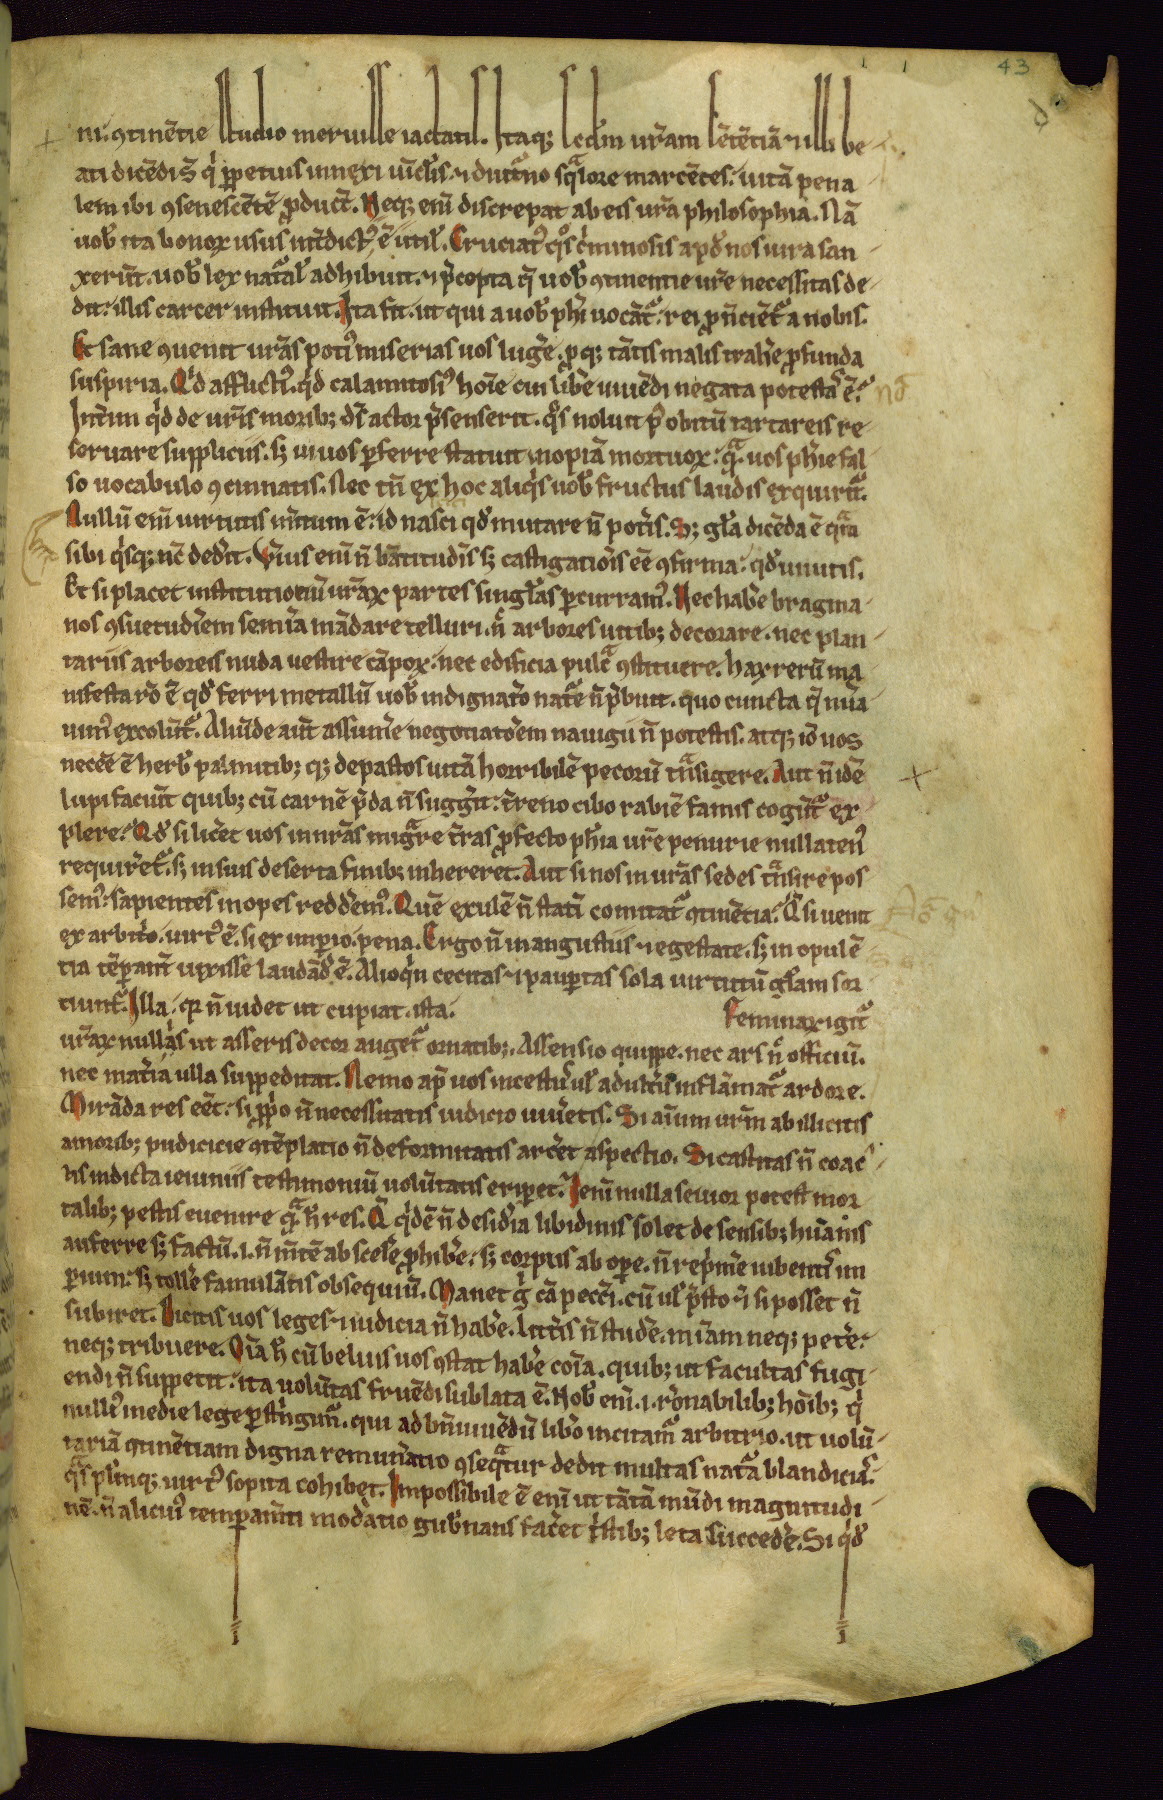 43
d
ni. ꝯtinētie studio meruisse iactatis. Itaq; scd'm ur̄am sētētiā ⁊ illi be
ati dicēdi s̄ q̇ ꝑpetuis innexi uīclis. ⁊ diut̾no sq̾lore marcētes. uitā pena
lem ibi ꝯsenescētē ꝓduc̄t. Neq; eni discrepat ab eis ur̄a philosophia. Nā
uob̄ ita bonoꝝ usus int̄dict᷒ ē ⁊ util'. Cruciat᷒ q̇s c̓minosis apd̄ nos iura san
xerūt. uob̄ lex nat̾al' adhibuit. ⁊ p̄copta q̄ uob̄ ꝯtinentie ur̄e necessitas de
dit. illis carcer instituit. Ita fit. ut qui a uob̄ ph̄i uocāt᷑. rei ꝓn̄ciēt᷑ a nobis.
Et sane ꝯuenit ur̄as poti᷒ miserias uos luḡe. ꝓq; tātis malis trah̄e ꝓfunda
suspiria. Qͥd afflicti᷒. qͥd calamitosi᷒ hoīe cui lib̄e uiuēdi negata potestas ē.
Int̄im qͥd de ur̄is morib; d's actor p̄senserit. q̊s noluit p᷒ obitū tartareis re
seruare suppliciis. s; uiuos ꝑferre statuit inopiā mortuoꝝ. q̾ uos ph̄ie fal
so uocabulo ꝯcinnatis. Nec tn̄ ex hoc aliq̇s uob̄ fructus laudis exquirit᷑.
Nullū eni uirtutis m̄itum ē. id nasci qd̄ mutare n̄ pot̄is. S; gl̄a dicēda ē q̄ita
sibi q̇sq; nc̄ ded̄it. Vn̄ius eni n̄ b̄atitudīs s; castigatiōis eē ꝯfirma. qd̄ uiuitis.
Et si placet institutionū ur̄aꝝ partes singl̄as ꝑcurram᷒. Nec hab̄e bragma
nos ꝯsuetudīem semīa mādare telluri. n̊ arbores uitib; decorare. nec plan
tariis arboreis nuda uestire cāpoꝝ. nec edificia pulc̾ ꝯstituere. haꝝ rerū ma
nifesta rō ē qd̄ ferri metallū uob̄ indignatō nat̾e n̄ p̄buit. quo cuncta q̄ miā
uim᷒ excolūt᷑. Aliūde aūt assum̄e negotiatōem nauigii n̄ potestis. atq; iō uos
necēe ē herb̄ palmitib; q; depastos uitā horribilē pecorū tn̾sigere. Aut n̄ idē
lupi faciūt quib; cū carnē p̄da n̄ sugḡit. t̄reno cibo rabiē famis cogūt᷑ ex
plere. Qd̄ si lic̄et uos in nr̄as mig̾re t̄ras ꝓfecto ph̄ia ur̄e penurie nullaten᷒
requir̄et᷑. s; in suis deserta finib; inhereret. Aut si nos in ur̄as sedes tn̾sire pos
sem᷒. sapientes inopes redd̄em᷒. Quē exulē n̄ stati comitat᷑ ꝯtinētia. Q̄ si uenit
ex arbit̓o. uirt᷒ ē. si ex impio. pena. Ergo n̄ in angustiis ⁊ egestate. s; in opulē
tia tēpant̄ uixisse laudād᷒ ē. Alioq̇n cecitas ⁊ paup̱tas sola uirtutū gl̄am sor
tiunt᷑. Illa. q̄ n̄ uidet ut cupiat. ista. Feminaꝝ igit᷑
ur̄aꝝ nullas ut asseris decor auget᷑ ornatib;. Assensio quippe. nec ars n̊ officiū.
nec mat̄ia ulla suppeditat. Nemo ap̄ uos incestu᷒ ul' adult̄ii inflāmat᷑ ardore.
Mirāda res eēt. si ꝓp̓o n̄ necessitatis iudicio uiu̅etis. Si aīum ur̄m ab illicitis
amorib; pudicicie ꝯtēplatio n̄ deformitatis arc̄et aspectio. Si castitas n̄ coac
tis indicta ieiuniis testimoniū volūtatis erip̱et. I eni nulla seuior potest mor
talib; pestis euenire q̾ h̄ res. Q̄ qͥdē n̄ desid̄ia libidinis solet de sensib; hūanis
auferre s; factū .i. n̄ m̄tē ab scel̄e ꝓhib̄e. s; corpus ab oꝑe. n̄ rep̓m̄e iubentis im
ꝑium. s; toll̄e famulātis obsequiū. Manet ḡ cā pecc̄i. cū ul' p̄sto ⁊ si posset n̄
subiret. Dicitis uos leges ⁊ iudicia n̄ hab̄e. litt̄is n̄ stud̄e. miā̄m neq; pet̄e.
neq; tribuere. Q̄ia h̄ cū beluis uos ꝯstat hab̄e coīa. quib; ut facultas fugi
endi n̄ suppetit. ita volūtas fruēdi sublata ē. Nob̄ eni .i. rōnabilib; hoīb; q̇
nulli᷒ inedie lege ꝑstrigim᷑. qui ad bn̄ uiuēdū lib̄o incitam᷑ arbitrio. ut volū
tariā ꝯtinētiam digna remun̄atio ꝯseq̾tur dedit multas nat̾a blandicias.
q̾s pl̄inq; uirt᷒ sopita cohibet. Impossibile ē eni ut tātā mūdi magnitudi
nē. n̄ alicui᷒ temperam̄ti mod̄atio gub̄nans fac̄et t̄stib; leta succed̄e. Si qd̄